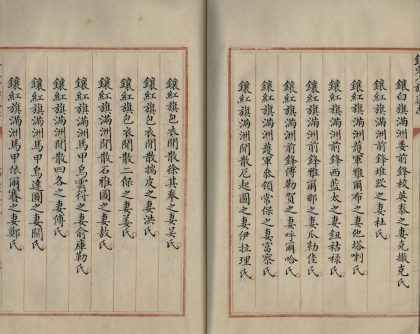 鑲白旗滿洲委前鋒校英泰之妻克撒克氏
鑲紅旗滿洲前鋒堆跤之妻杜氏
鑲紅旗滿洲護軍雅爾布之妻他喇氏
鑲紅旗滿洲前鋒西藍太之妻鈕祜祿氏
鑲紅旗滿洲前鋒雅爾那之妻瓜勒佳氏
鑲紅旗滿洲前鋒傅勒賀之妻呼爾哈氏
鑲紅旗滿洲護軍叅領常保之妻富察氏
鑲紅旗滿洲閒散尼起圖之妻伊拉理氏
鑲紅旗包衣閒散徐其奉之妻吳氏
鑲紅旗包衣閒散 皮之妻洪氏
鑲紅旗包衣閒散二保之妻姜氏
鑲紅旗滿洲閒散石雅圖之妻敖氏
鑲紅旗滿洲閒散四各之妻傅氏
鑲紅旗滿洲馬甲烏雲待之妻俞庫勒氏
鑲紅旗滿洲馬甲烏達圖之妻關氏
鑲紅旗滿洲馬甲依爾賽之妻鄭氏